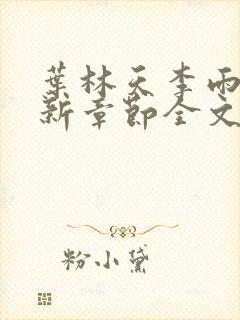 葉林天李雨
新章節全文
粉小黛